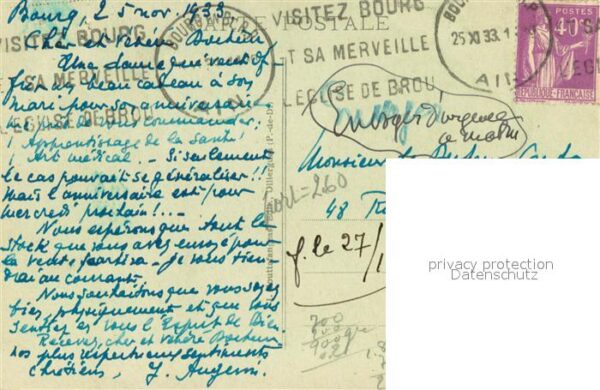 Bourg, 25 nov. 1933.
Cher et Vénéré Docteur
Une dame qui veut of-
frir un beau cadeau à son
mari pour son anniversaire
me vient de vous commander:
"Apprentissage de la Santé"
"Art médical"... Si seulement
le cas pouvait se généraliser!!
Mais l'anniversaire est pour
mercredi prochain!...
Nous espérons que tout le
stock que vous avez envoyé pour
la vente partira. Je vous tien-
drai au courant.
Nous souhaitons que vous soyez
bien, physiquement et que vous
sentiez en vous l'Esprit de Dieu.
Recevez, cher et vénéré Docteur
nos plus respectueux sentiments
chrétiens,
CARTE POSTALE
VISITEZ BOURG
ET SA MERVEILLE
L'EGLISE DE BROU
VISITEZ BOURG
ET SA MERVEILLE
L'EGLISE DE BROU
BOURG
25 XI 33
AIN
POSTES
40c
REPUBLIQUE-FRANÇAISE
Envoyé d'urgence
ce matin
Monsieur le Docteur
48
port = 2.60
f. le 27/1
privacy protection
Datenschutz